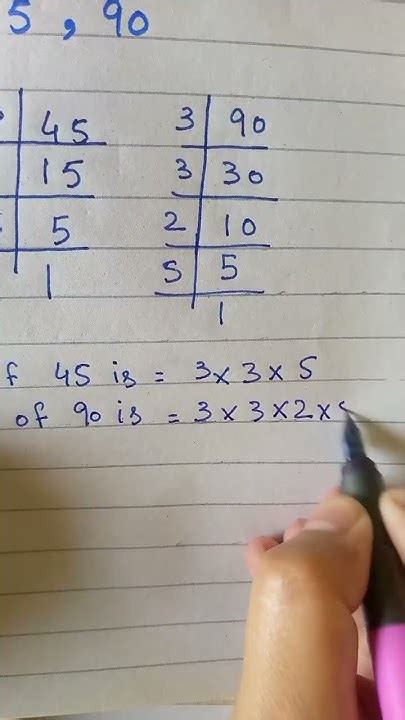 5, 90
45 3 90
15 3 30
5 2 10
1 5 5
1
f 45 is = 3 x 3 x 5
of 90 is = 3 x 3 x 2 x